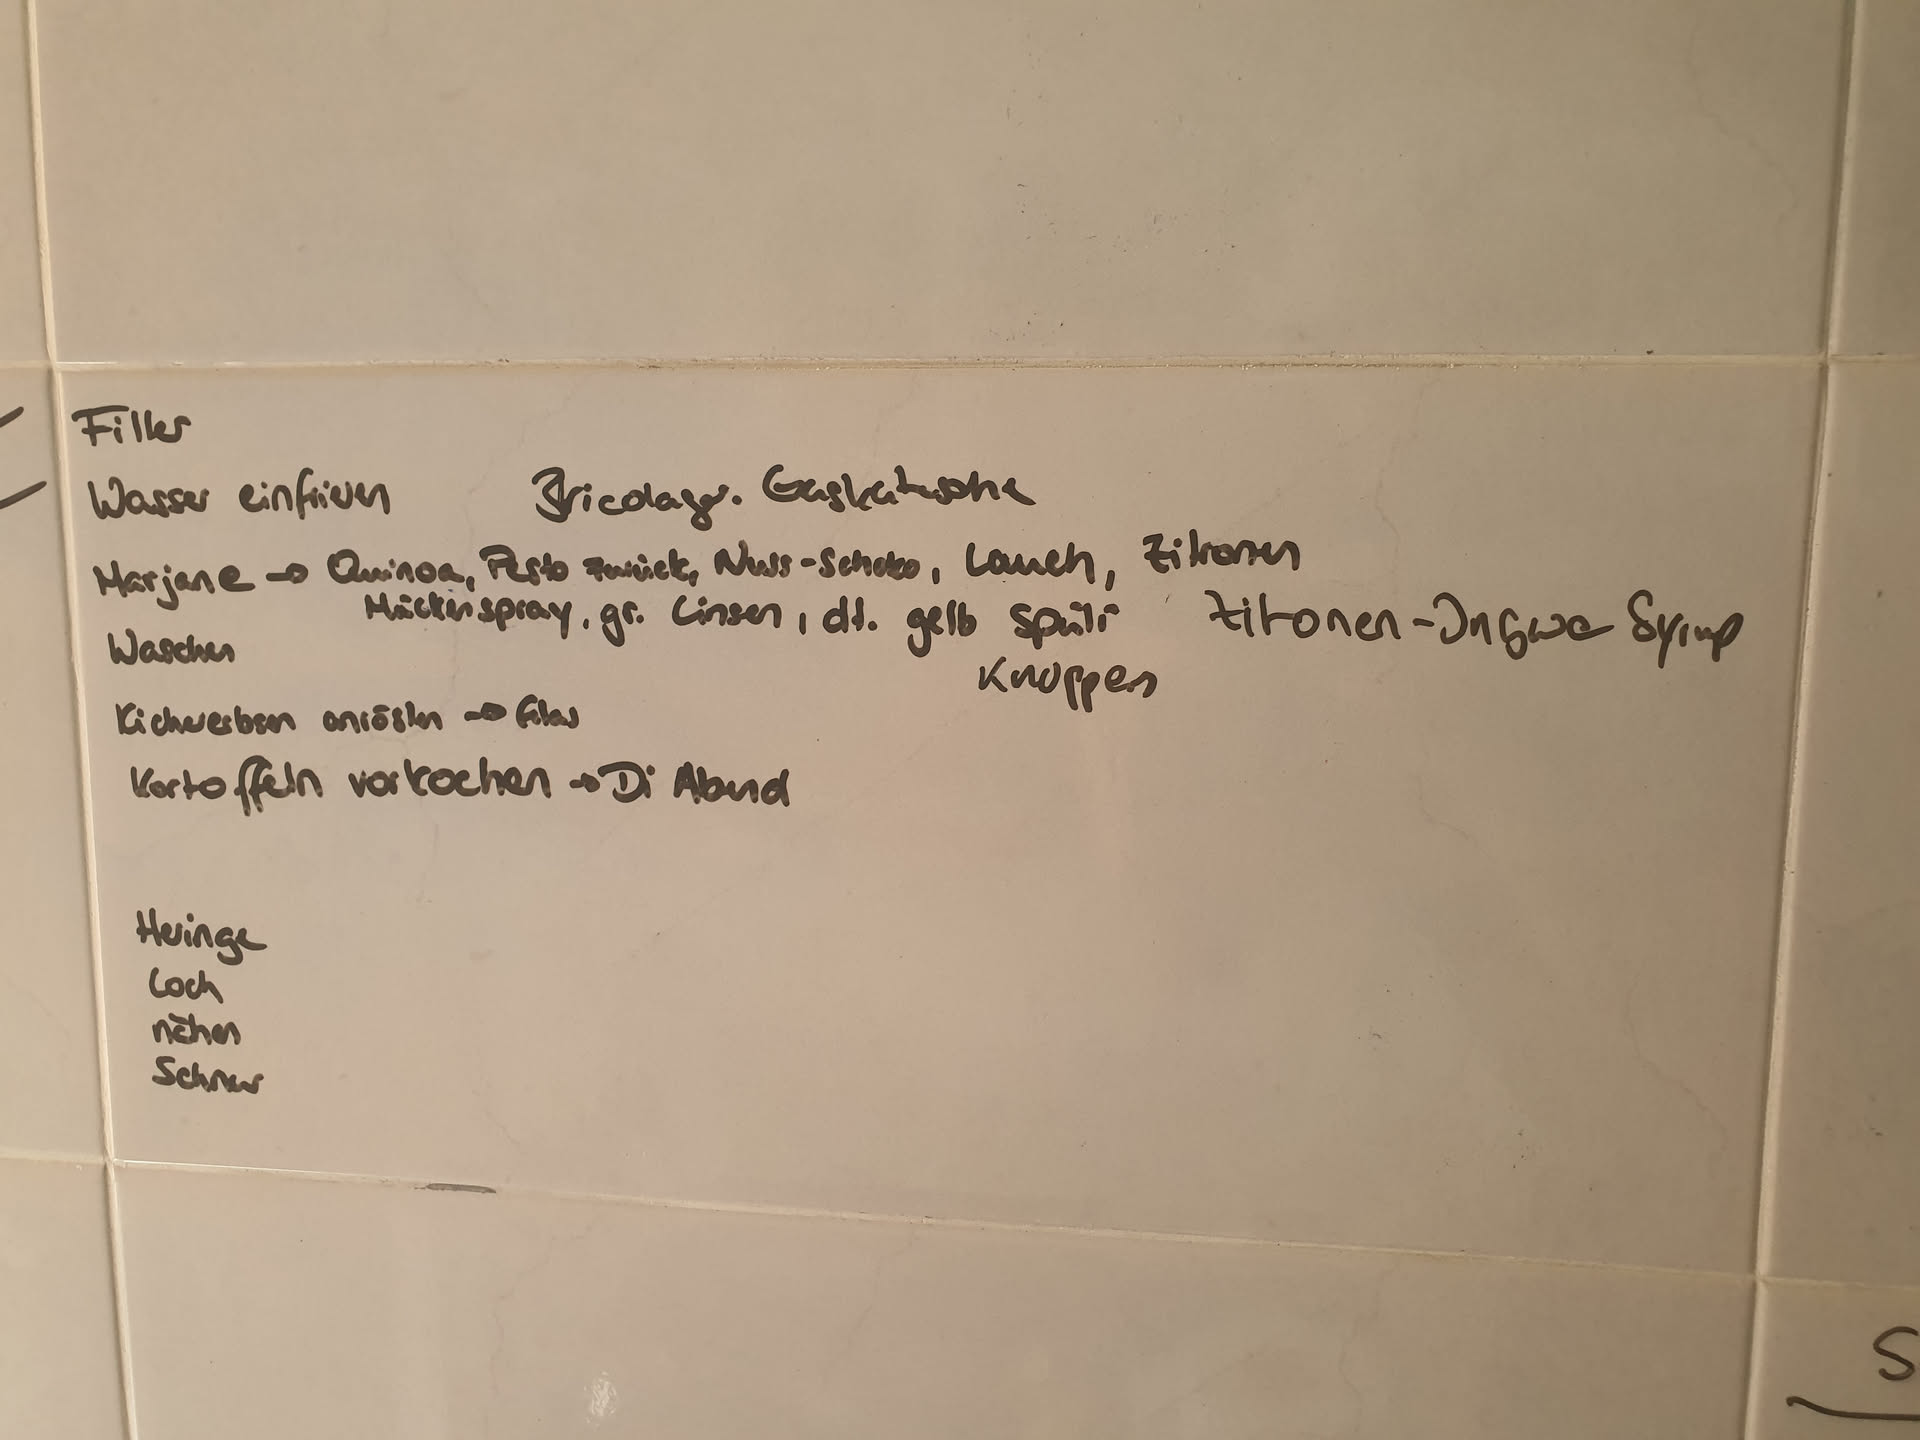 Filter
Wasser einfrieren Bricolage. Gaskartusche
Marjane → Quinoa, Pesto zurück, Nuss-Schoko, Lauch, Zitronen
Mückenspray, gr. Linsen, dt. gelb Spüli Zitronen-Ingwer Syrup
Knoppers
Waschen
Kichererbsen anrösten →
Kartoffeln vorkochen → Di Abend
Heringe
Loch
nähen
Schnur
S